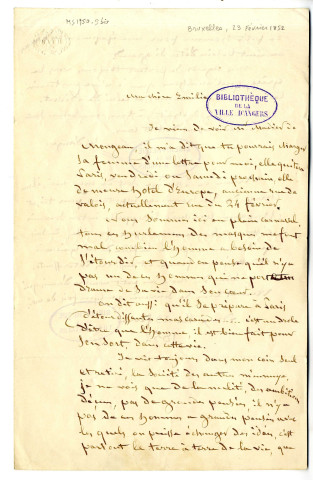 MS 1950
Bruxelles, 23 février 1852
Ma chère Emilie
BIBLIOTHÈQUE
DE LA
VILLE D'ANGERS
Je viens de voir M. Madier de
Monjeau, il m'a dit que tu pourrais charger
sa femme d'une lettre pour moi, elle quittera
Paris, vendredi ou Samedi prochain, elle
demeure hôtel d'Europe, ancienne rue de
Valois, actuellement rue du 24 février.
Nous sommes ici en plein carnaval,
tous ces hurlements des masques me font
mal, combien l'homme a besoin de
s'étourdir, et quand on pense qu'il n'y a
pas un de ces hommes qui ne porte un
drame de sa vie dans son cœur.
on dit aussi qu'il se prépare à Paris
d'étourdissantes mascarades, c'est un drôle
d'être que l'homme il est bien fait pour
son sort dans cette vie.
Je vis toujours dans mon coin seul
et retiré, la société des autres m'ennuye,
je ne vois que de la nullité, des ambitions
déçues, pas de grandes pensées, il n'y a
pas de ces hommes à grandes pensées avec
les quels on puisse échanger des idées, c'est
partout le terre à terre de la vie, que